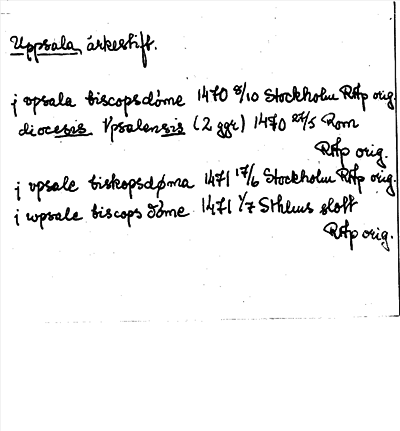 Uppsala, ärkestift.
j vpsala biscopsdóme 1470 8/10 Stockholm RAp orig.
diocesis Vpsalensis (2 ggr) 1470 22/5 Rom
RAp orig.
j vpsale biskopsdøma 1471 17/6 Stockholm RAp orig.
j wpsale biscops dóme 1471 1/7 Sthlms slott
RAp orig.